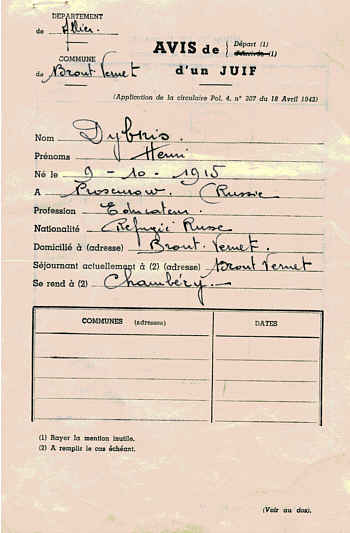 DÉPARTEMENT
de Allier
COMMUNE
de Brout Vernet
AVIS de { Départ (1)
Arrivée (1)
d'un JUIF
(Application de la circulaire Pol. 4, n° 207 du 18 Avril 1942)
Nom Dybnis.
Prénoms Henri
Né le 9-10-1915
A Proscurow (Russie
Profession Educateur.
Nationalité Réfugié Russe
Domicilié à (adresse) Brout-Vernet.
Séjournant actuellement à (2) (adresse) Brout Vernet
Se rend à (2) Chambéry
COMMUNES (adresses) DATES
(1) Rayer la mention inutile.
(2) A remplir le cas échéant.
(Voir au dos).